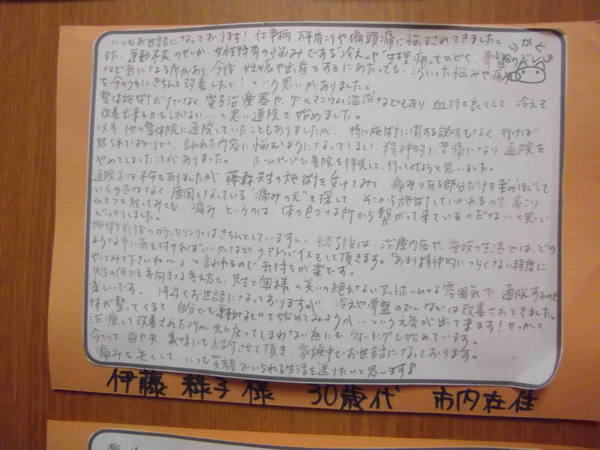 いつもお世話になっております！仕事柄、肩こりや偏頭痛に悩まされてきました。
また、運動不足のせいか女性特有の悩みである"冷え"や"生理痛"もひどく、骨盤のズレ
など気になる所があり、今後、妊娠や出産をするにあたっても、こういった悩みや痛み
を今のうちにきちんと改善したい！という思いがありました。
整体施術だけでなく、電子治療器や、ゲルマニウム温浴などもあり、血行を良くして、冷えも
改善出来るかもしれない…と思い通院を始めました。
以前、他の整体院に通院していたこともありましたが、特に施術に関する説明もなく、行けば
怒られてばかりで、言われた内容に悩んでしまうようになってしまい、精神的に苦痛になり、通院を
やめてしまったことがありました。ホームページで貴院を拝見して、行ってみようと思いました。
通院前は不安もありましたが、藤森先生の施術を受けてみて、痛みのある部分だけを揉みほぐして
いくのではなく、原因となっている"痛みの元"を探して、そこから施術していかれるので、肩こり
ひとつ取ってみても、痛みというのは、体の色々な所から繋がって来ているのだな～と思い
ビックリしました。
施術前後のカウンセリングはきちんとしていますし、終了後は、治療内容や、普段の生活では、どの
ような事に気を付ければいいかなど、アドバイスもして頂きます。"あまり精神的につらくない程度に
やってみて下さいね～"と言われるので気持ちが楽です。
先生の何でも前向きな考え方と、先生と奥様の笑いの絶えないアットホームな雰囲気で、通院するのも
楽しいです。1年半くお世話になっておりますが、冷えや骨盤のズレなどは改善されてきました。
体が整ってくると、自分でも運動などを始めてみようか…という気が出て来ます！せっかく
治療して改善されたのが元に戻ってしまわない為にも、ウォーキングも始めています。
今では、母や夫、義妹にも紹介させて頂き、家族中でお世話になっております。
痛みを無くして、いつも笑顔でいられる生活を送りたいと思います♪
伊藤 様 30歳代 市内在住